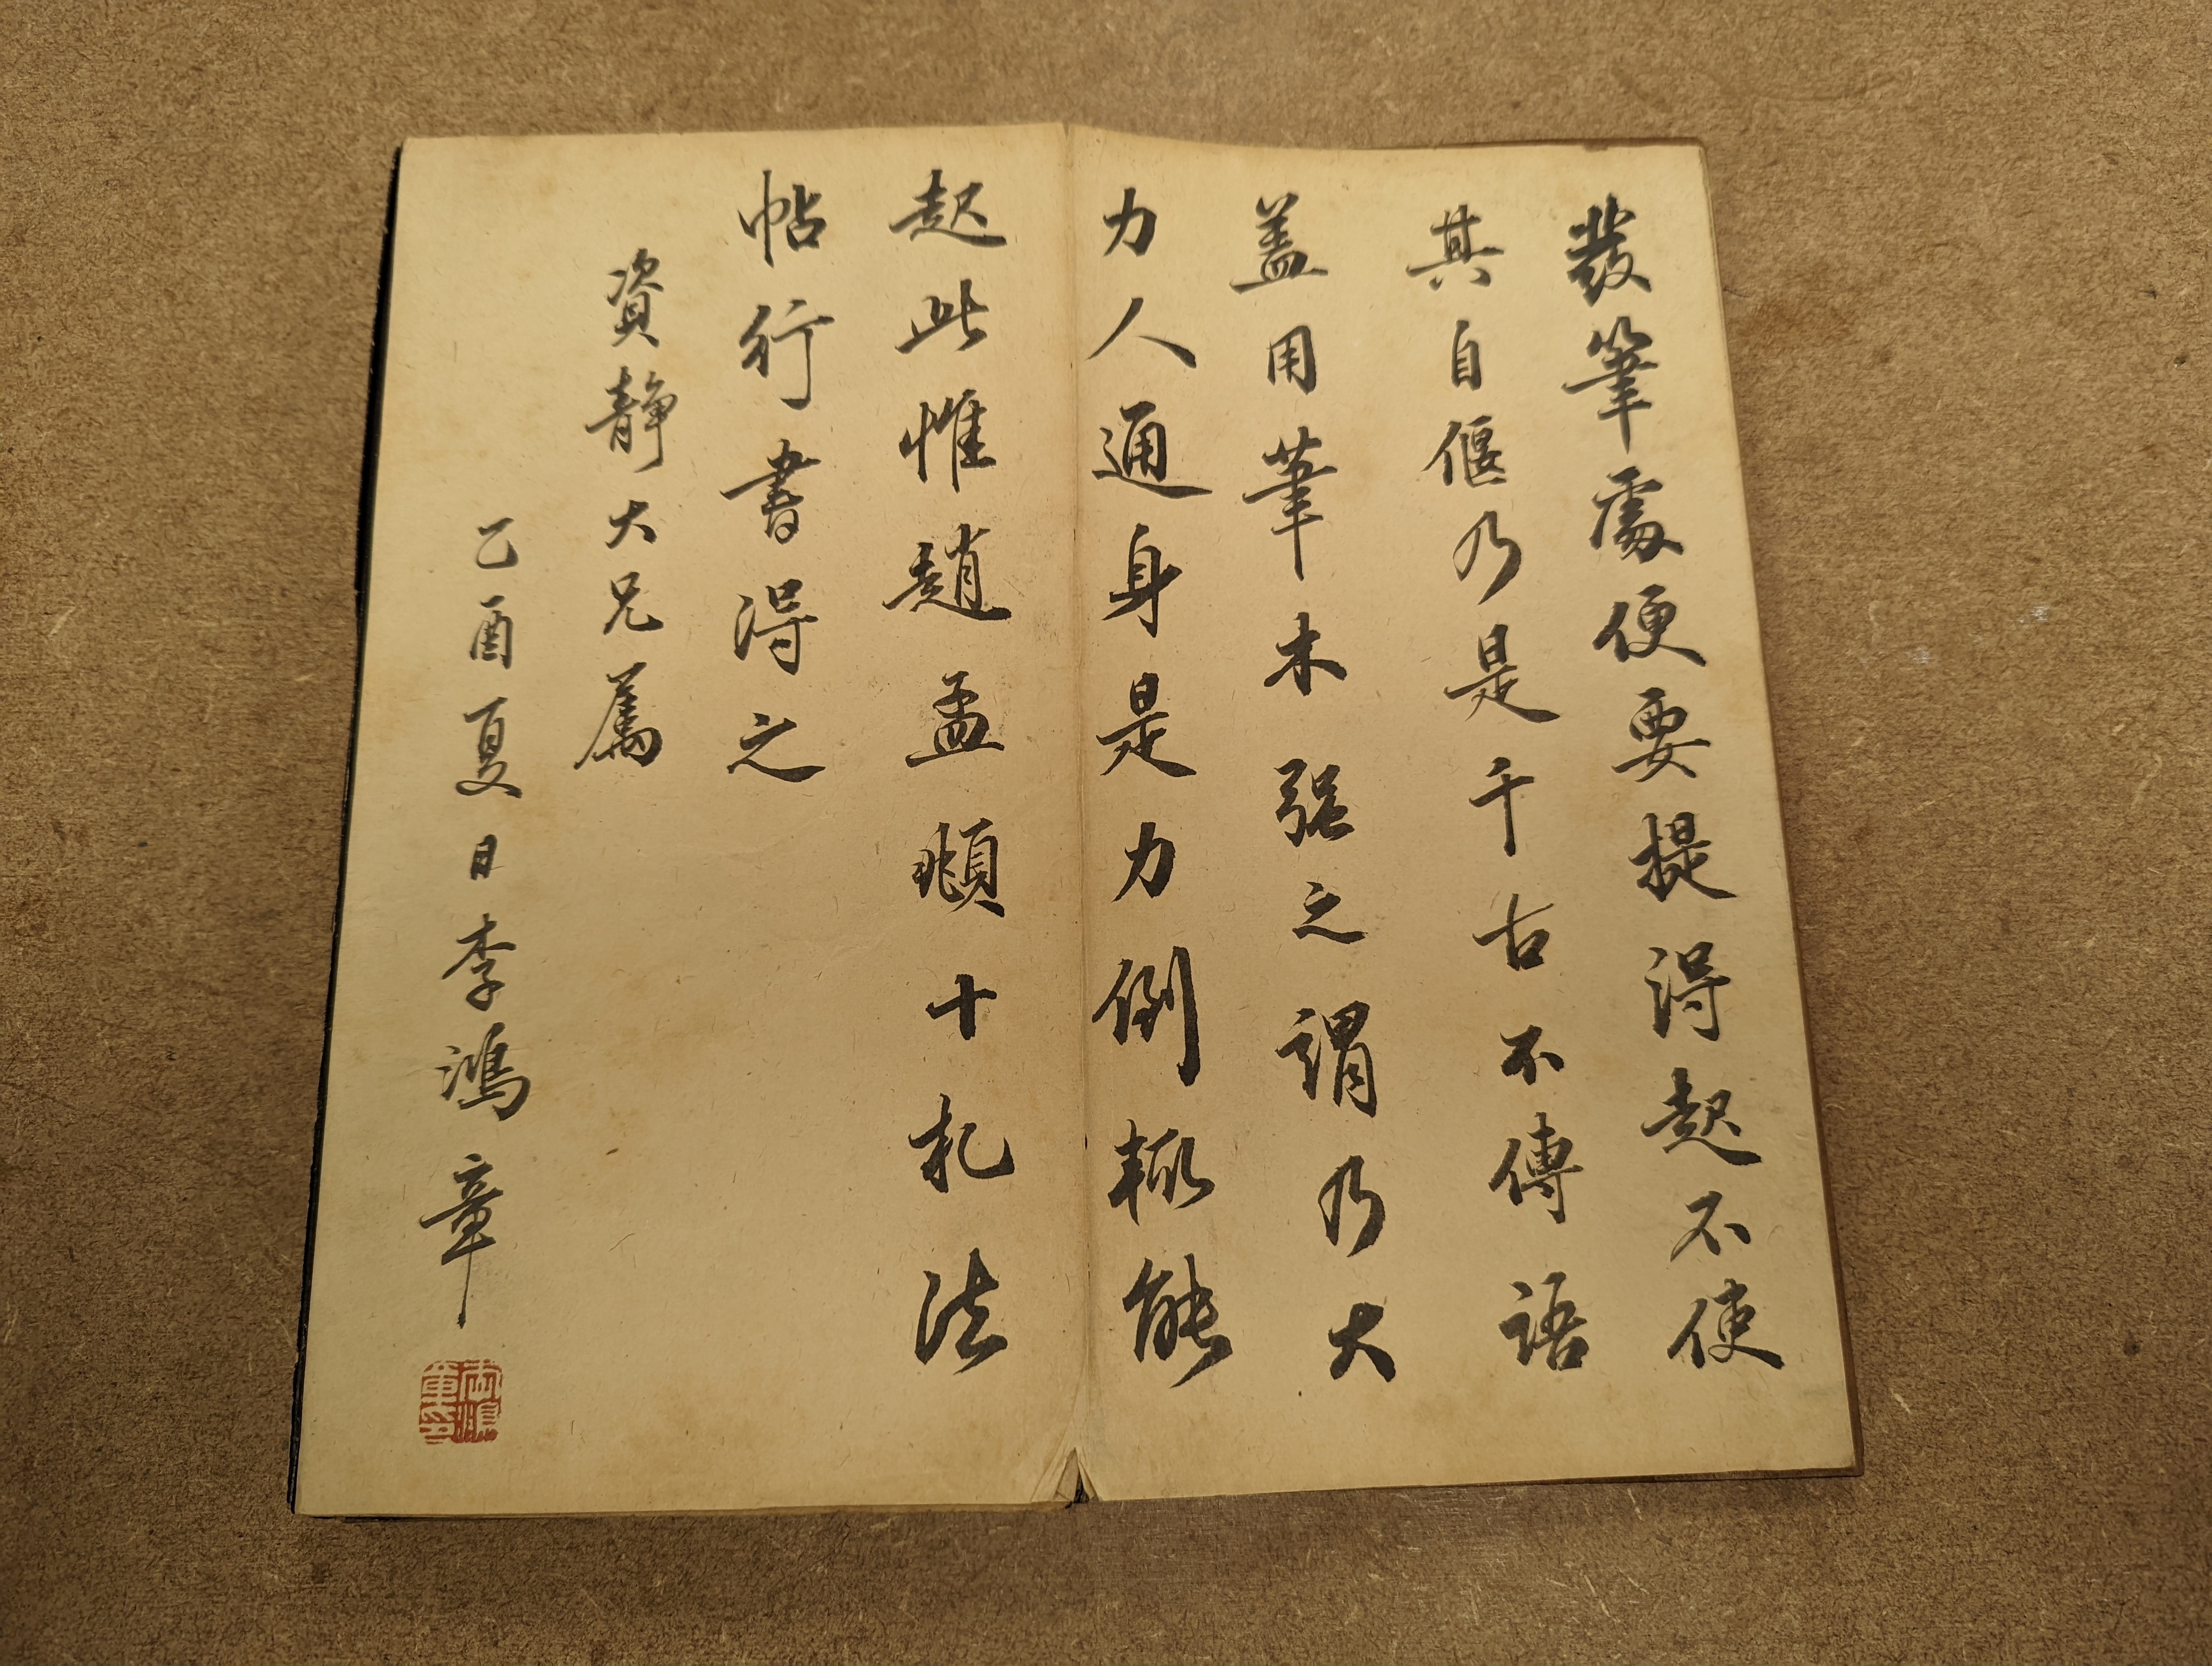 發筆處便要提得起不使
其自偃乃是千古不傳語
蓋用筆木强之謂乃大
力人通身是力倒輒能
起此惟趙孟頫十札法
帖行書得之
資靜大兄屬
乙酉夏日李鴻章
李鴻章印